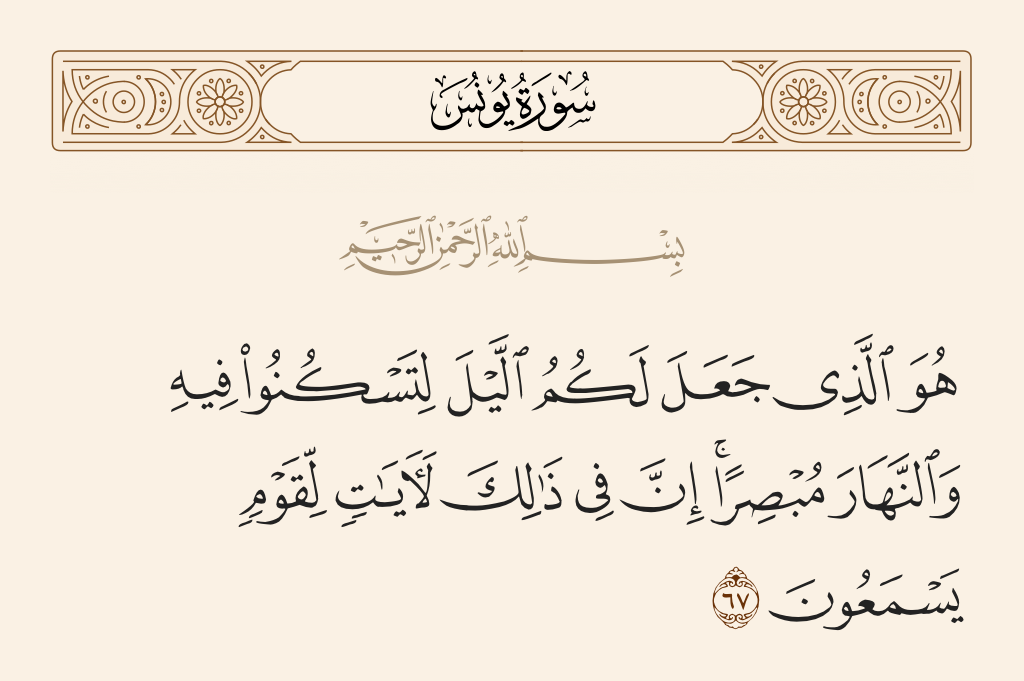 سُورَةُ يُونُسَ
بِسْمِ ٱللَّهِ ٱلرَّحْمَٰنِ ٱلرَّحِيمِ
هُوَ ٱلَّذِى جَعَلَ لَكُمُ ٱلَّيْلَ لِتَسْكُنُوا۟ فِيهِ
وَٱلنَّهَارَ مُبْصِرًا ۚ إِنَّ فِى ذَٰلِكَ لَـَٔايَـٰتٍ لِّقَوْمٍ
يَسْمَعُونَ ٦٧